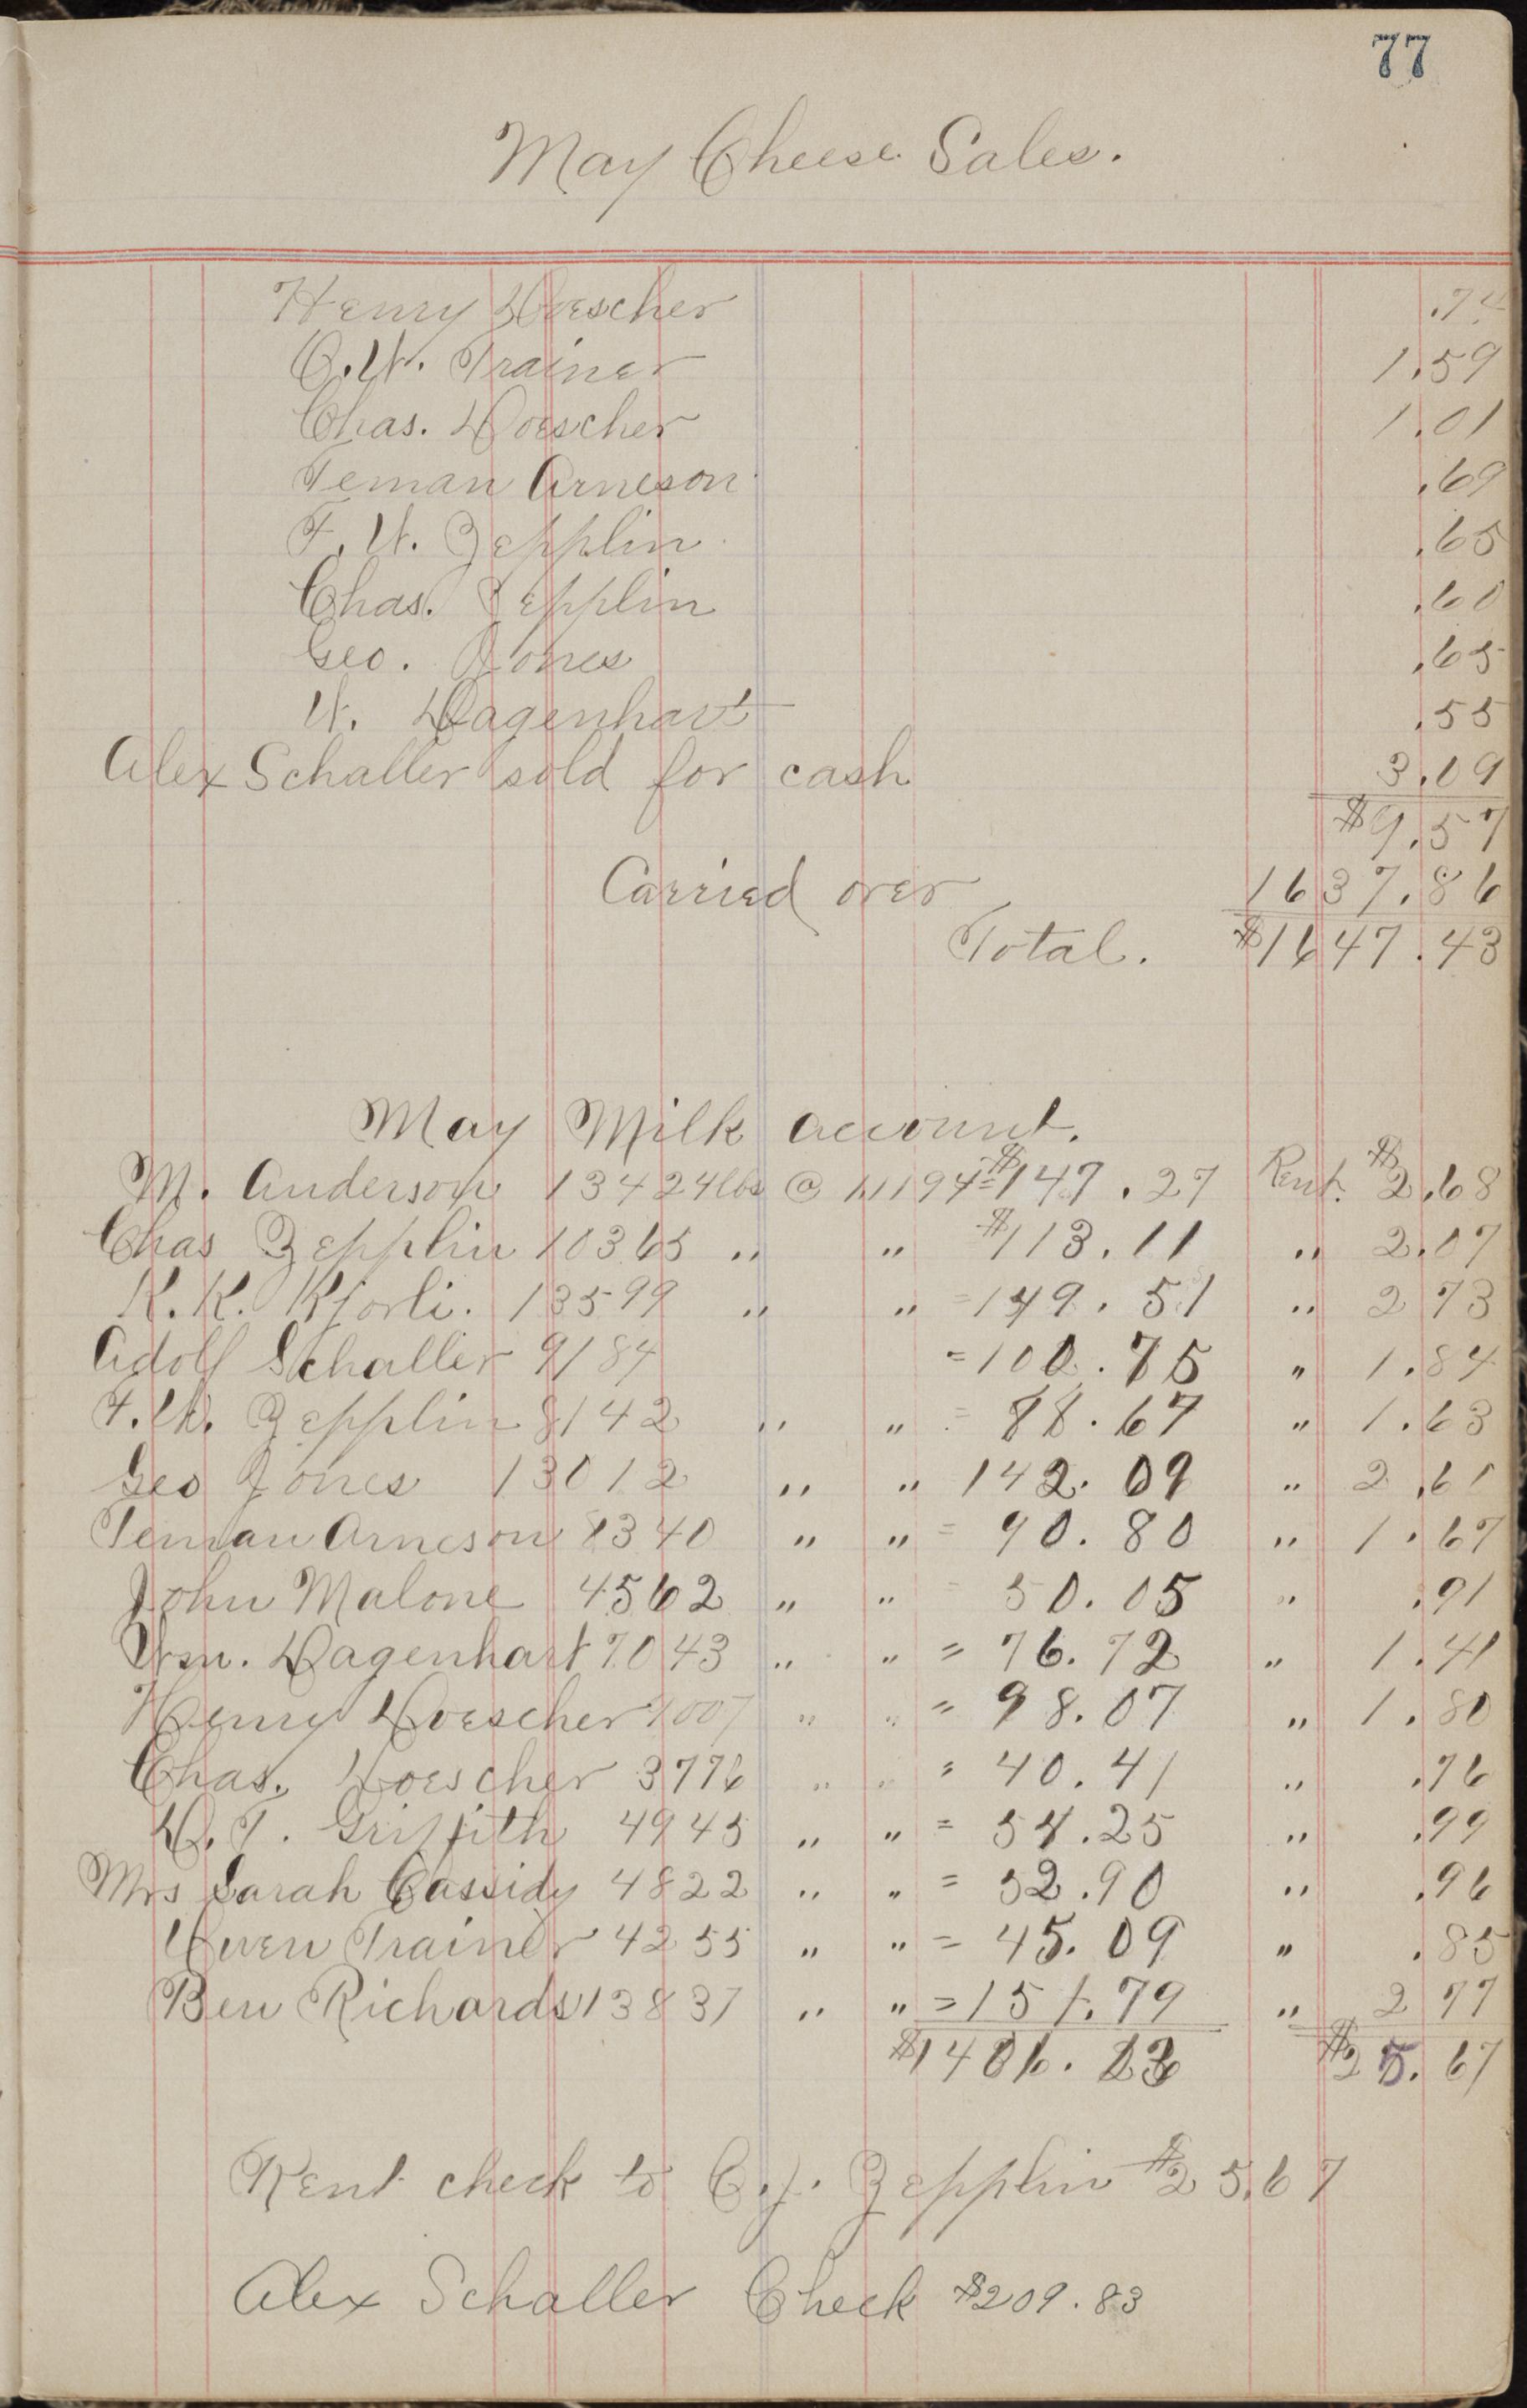 77
May Cheese Sales.
Henry Doescher .74
O.W. Trainer 1.59
Chas. Doescher 1.01
Teman Arneson .69
F. W. Zepplin .65
Chas. Zepplin .60
Geo. Jones .65
W. Dagenhart .55
Alex Schaller sold for cash 3.09
$9.57
Carried over 1637.86
Total. $1647.43
May Milk account.
M. Anderson 13424lbs @ 1.1194=$147.27 Rent. $2.68
Chas Zepplin 10365 " " $113.11 " 2.07
K. K. Kjorli. 13599 " " =149.51 " 2 73
Adolf Schaller 9184 =100.75 " 1.84
F. W. Zepplin 8142 " " = 88.67 " 1.63
Geo Jones 13012 " " 142.09 " 2.61
Teman Arneson 8340 " " = 90.80 " 1.67
John Malone 4562 " " = 50.05 " .91
Wm. Dagenhart 7043 " " = 76.72 " 1.41
Henry Doescher 9007 " " = 98.07 " 1.80
Chas. Doescher 3776 " " = 40.41 " .76
D. T. Griffith 4945 " " = 54.25 " .99
Mrs Sarah Cassidy 4822 " " = 52.90 " .96
Owen Trainer 4255 " " = 45.09 " .85
Ben Richards 13837 " " =151.79 " 2 77
$1401.23 $25.67
Rent check to C. J. Zepplin $25.67
Alex Schaller Check $209.83